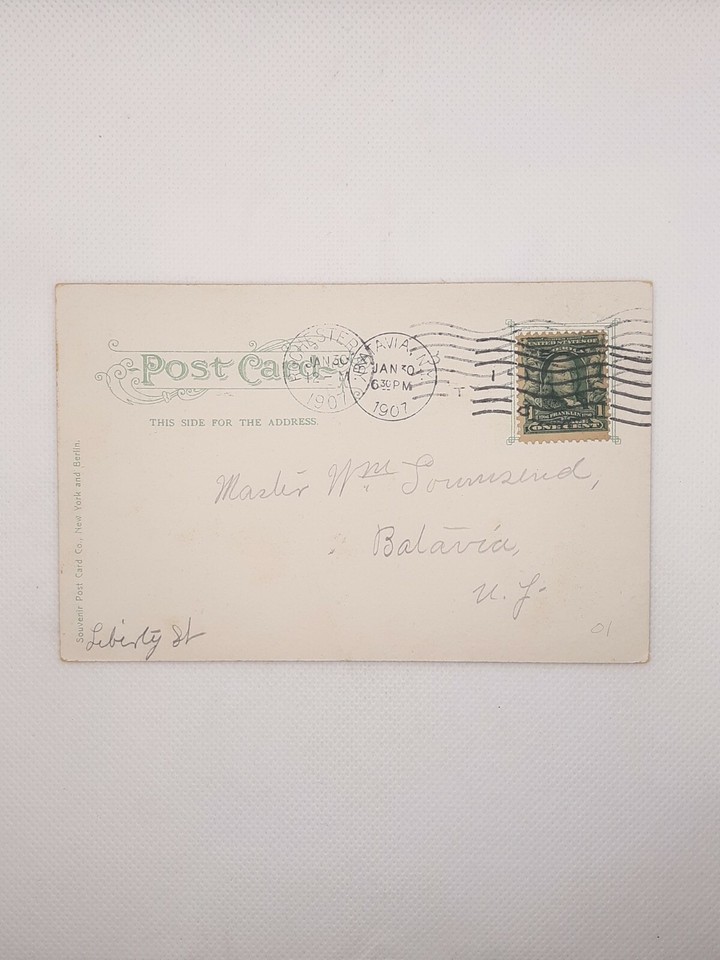 Post Card
THIS SIDE FOR THE ADDRESS.
ROCHESTER
JAN 30
1907
BATAVIA, N.Y.
JAN 30
6 30 PM
1907
UNITED STATES OF
FRANKLIN
1 1
ONE CENT
Master Wm. Townsend,
Batavia,
N. Y.
Liberty St
01
Souvenir Post Card Co., New York and Berlin.